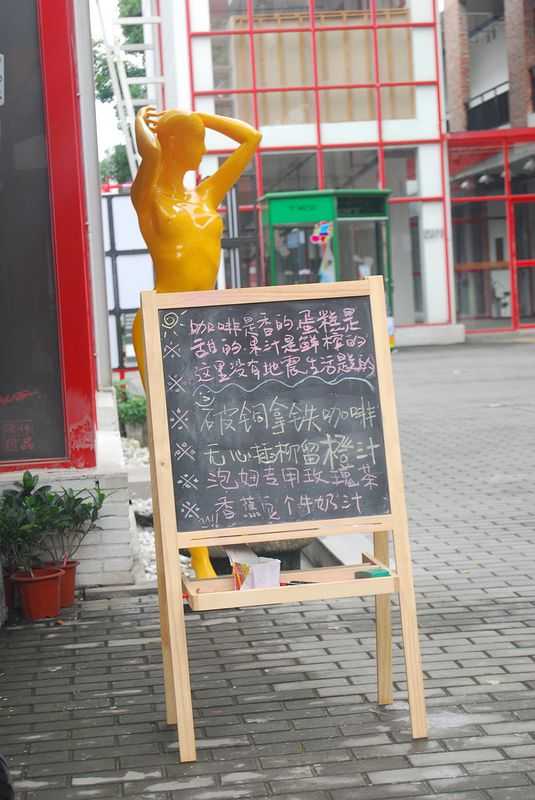 咖啡是香的 蛋糕是
甜的 果汁是鲜榨的
这里没有地震 生活是美的
破铜拿铁咖啡
无心插柳留橙汁
泡妞专用玫瑰茶
香蕉豆个牛奶汁